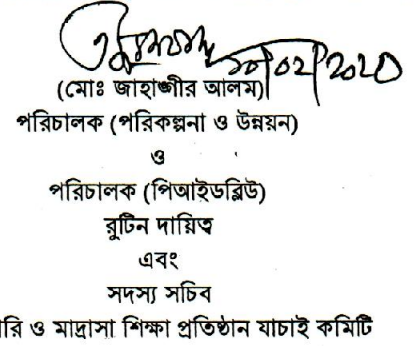 ১০/০২/২০২০
(মোঃ জাহাঙ্গীর আলম)
পরিচালক (পরিকল্পনা ও উন্নয়ন)
ও
পরিচালক (পিআইডব্লিউ)
রুটিন দায়িত্ব
এবং
সদস্য সচিব
রি ও মাদ্রাসা শিক্ষা প্রতিষ্ঠান যাচাই কমিটি